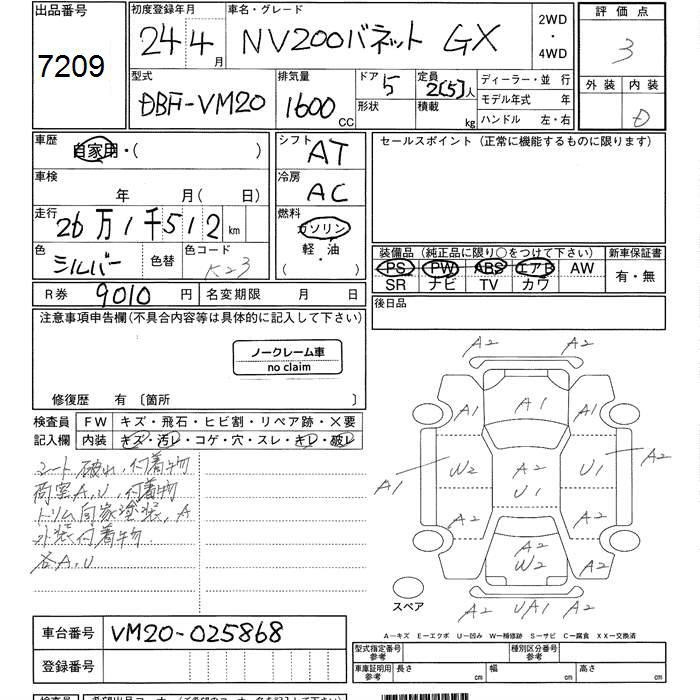 出品番号 初度登録年月 車名・グレード 2WD・4WD 評価点
7209 24年4月 NV200バネット GX 3
型式 排気量 ドア 5 定員 2(5)人 ディーラー・並行 外装 内装
DBF-VM20 1600CC 形状 積載 kg モデル年式 年 D
ハンドル 左・右
車歴 自家用・( ) シフト AT セールスポイント (正常に機能するものに限ります)
車検 年 月(日) 冷房 AC
走行 26万1千512km 燃料 ガソリン
軽・油
( ・ )
色 シルバー 色替 色コード K23
装備品 (純正品に限り○をつけて下さい) 新車保証書
PS PW ABS エアB AW 有・無
SR ナビ TV カワ
R券 9010円 名変期限 月 日 後日品
注意事項申告欄(不具合内容等は具体的に記入して下さい)
ノークレーム車
no claim
修復歴 有 〔箇所 〕
検査員 FW キズ・飛石・ヒビ割・リペア跡・X要
記入欄 内装 キズ・汚レ・コゲ・穴・スレ・キレ・破レ
シート破れ、付着物
荷室A,U,付着物
トリム自家塗装、A
外装付着物
各A,U
A2 A2
A1 A1 A1
A1 W2 A2 U1 U1 A2
A2 A2 A2
W2
A2 UA1 A2
スペア
A-キズ E-エクボ U-凹み W-補修跡 S-サビ C-腐食 XX-交換済
車台番号 VM20-025868
登録番号
型式指定番号 参考 種別区分番号 参考
車庫証明用 参考 長さ cm 幅 cm 高さ cm